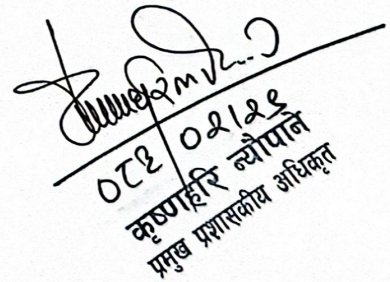 ०२।२९
कृष्णहरि न्यौपाने
प्रमुख प्रशासकीय अधिकृत